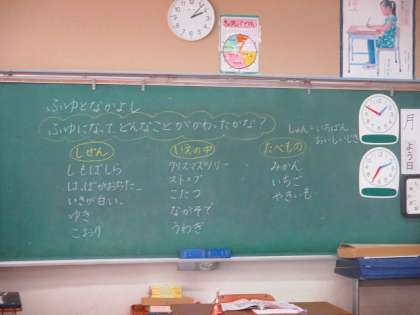 ふゆとなかよし
ふゆになって、どんなことがかわったかな？
しゅん＝いちばん
おいしいじき
しぜん
しもばしら
はっぱがおちた。
いきが白い。
ゆき
こおり
いえの中
クリスマスツリー
ストーブ
こたつ
ながそで
うわぎ
たべもの
みかん
いちご
やきいも
月
よう日